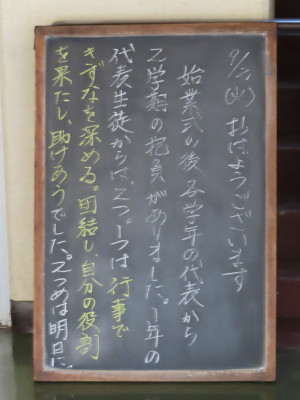 9/2(火)おはようございます
始業式の後、各学年の代表から
2学期の抱負がありました。1年の
代表生徒からは、2つ。1つは行事で
きずなを深める。団結し、自分の役割
を果たし、助けあうでした。2つめは明日に。